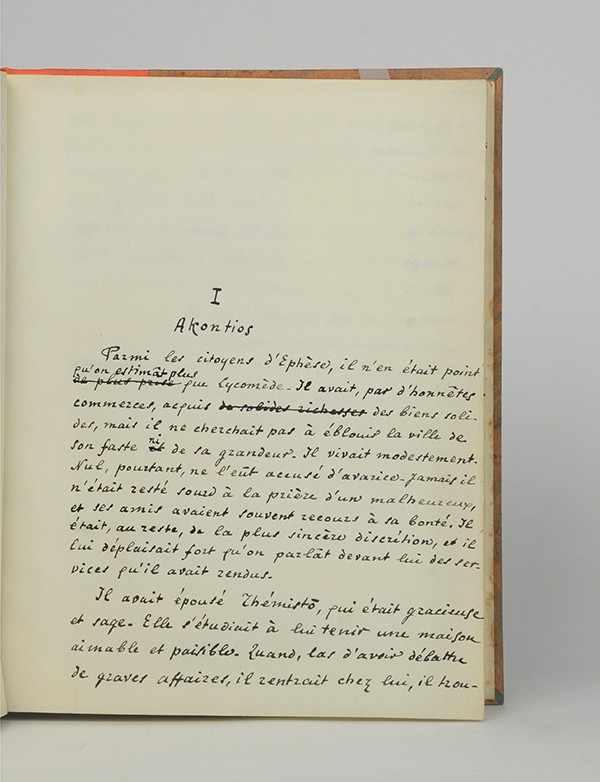 I
Akontios
Parmi les citoyens d'Ephèse, il n'en était point
qu'on estimât plus
de plus prisé que Lycomède. Il avait, par d'honnêtes
commerces, acquis de solides richesses des biens soli-
des, mais il ne cherchait pas à éblouir la ville de
son faste ni de sa grandeur. Il vivait modestement.
Nul, pourtant, ne l'eût accusé d'avarice. Jamais il
n'était resté sourd à la prière d'un malheureux,
et ses amis avaient souvent recours à sa bonté. Il
était, au reste, de la plus sincère discrétion, et il
lui déplaisait fort qu'on parlât devant lui des ser-
vices qu'il avait rendus.
Il avait épousé Thémistô, qui était gracieuse
et sage. Elle s'étudiait à lui tenir une maison
aimable et paisible. Quand, las d'avoir débattu
de graves affaires, il rentrait chez lui, il trou-